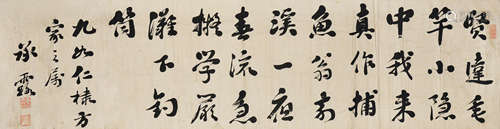 賢達垂
竿小隱
中我來
真作捕
魚翁前
溪一夜
春流急
擬學嚴
灘下釣
筒
九如仁棣方
家之屬